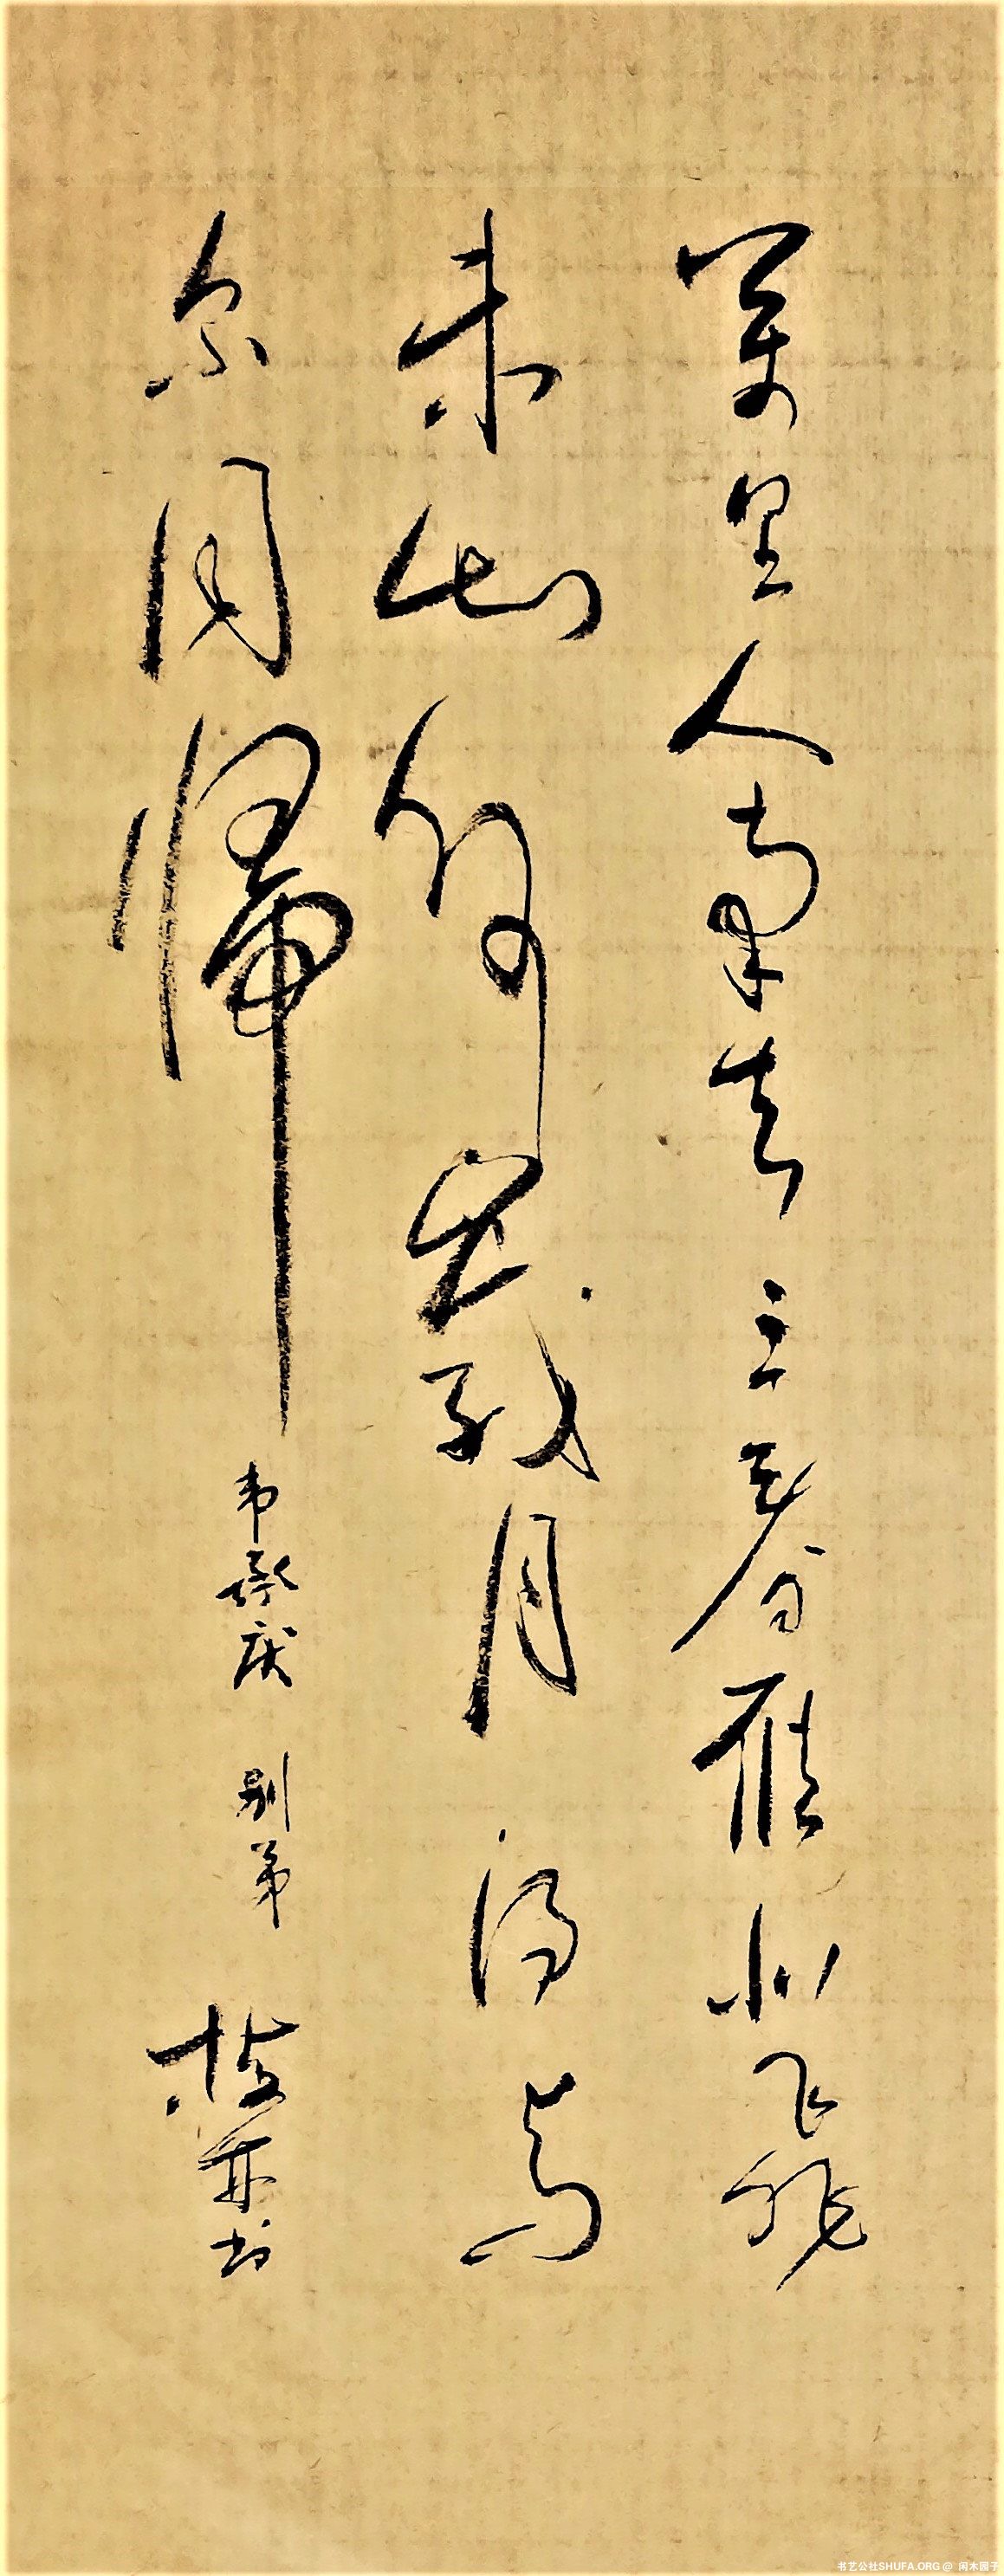 萬里人南去三春雁北飛
未知何歲月得与
尔同歸 韦承庆 别弟 书
书艺公社SHUFA.ORG @ 闲木园子